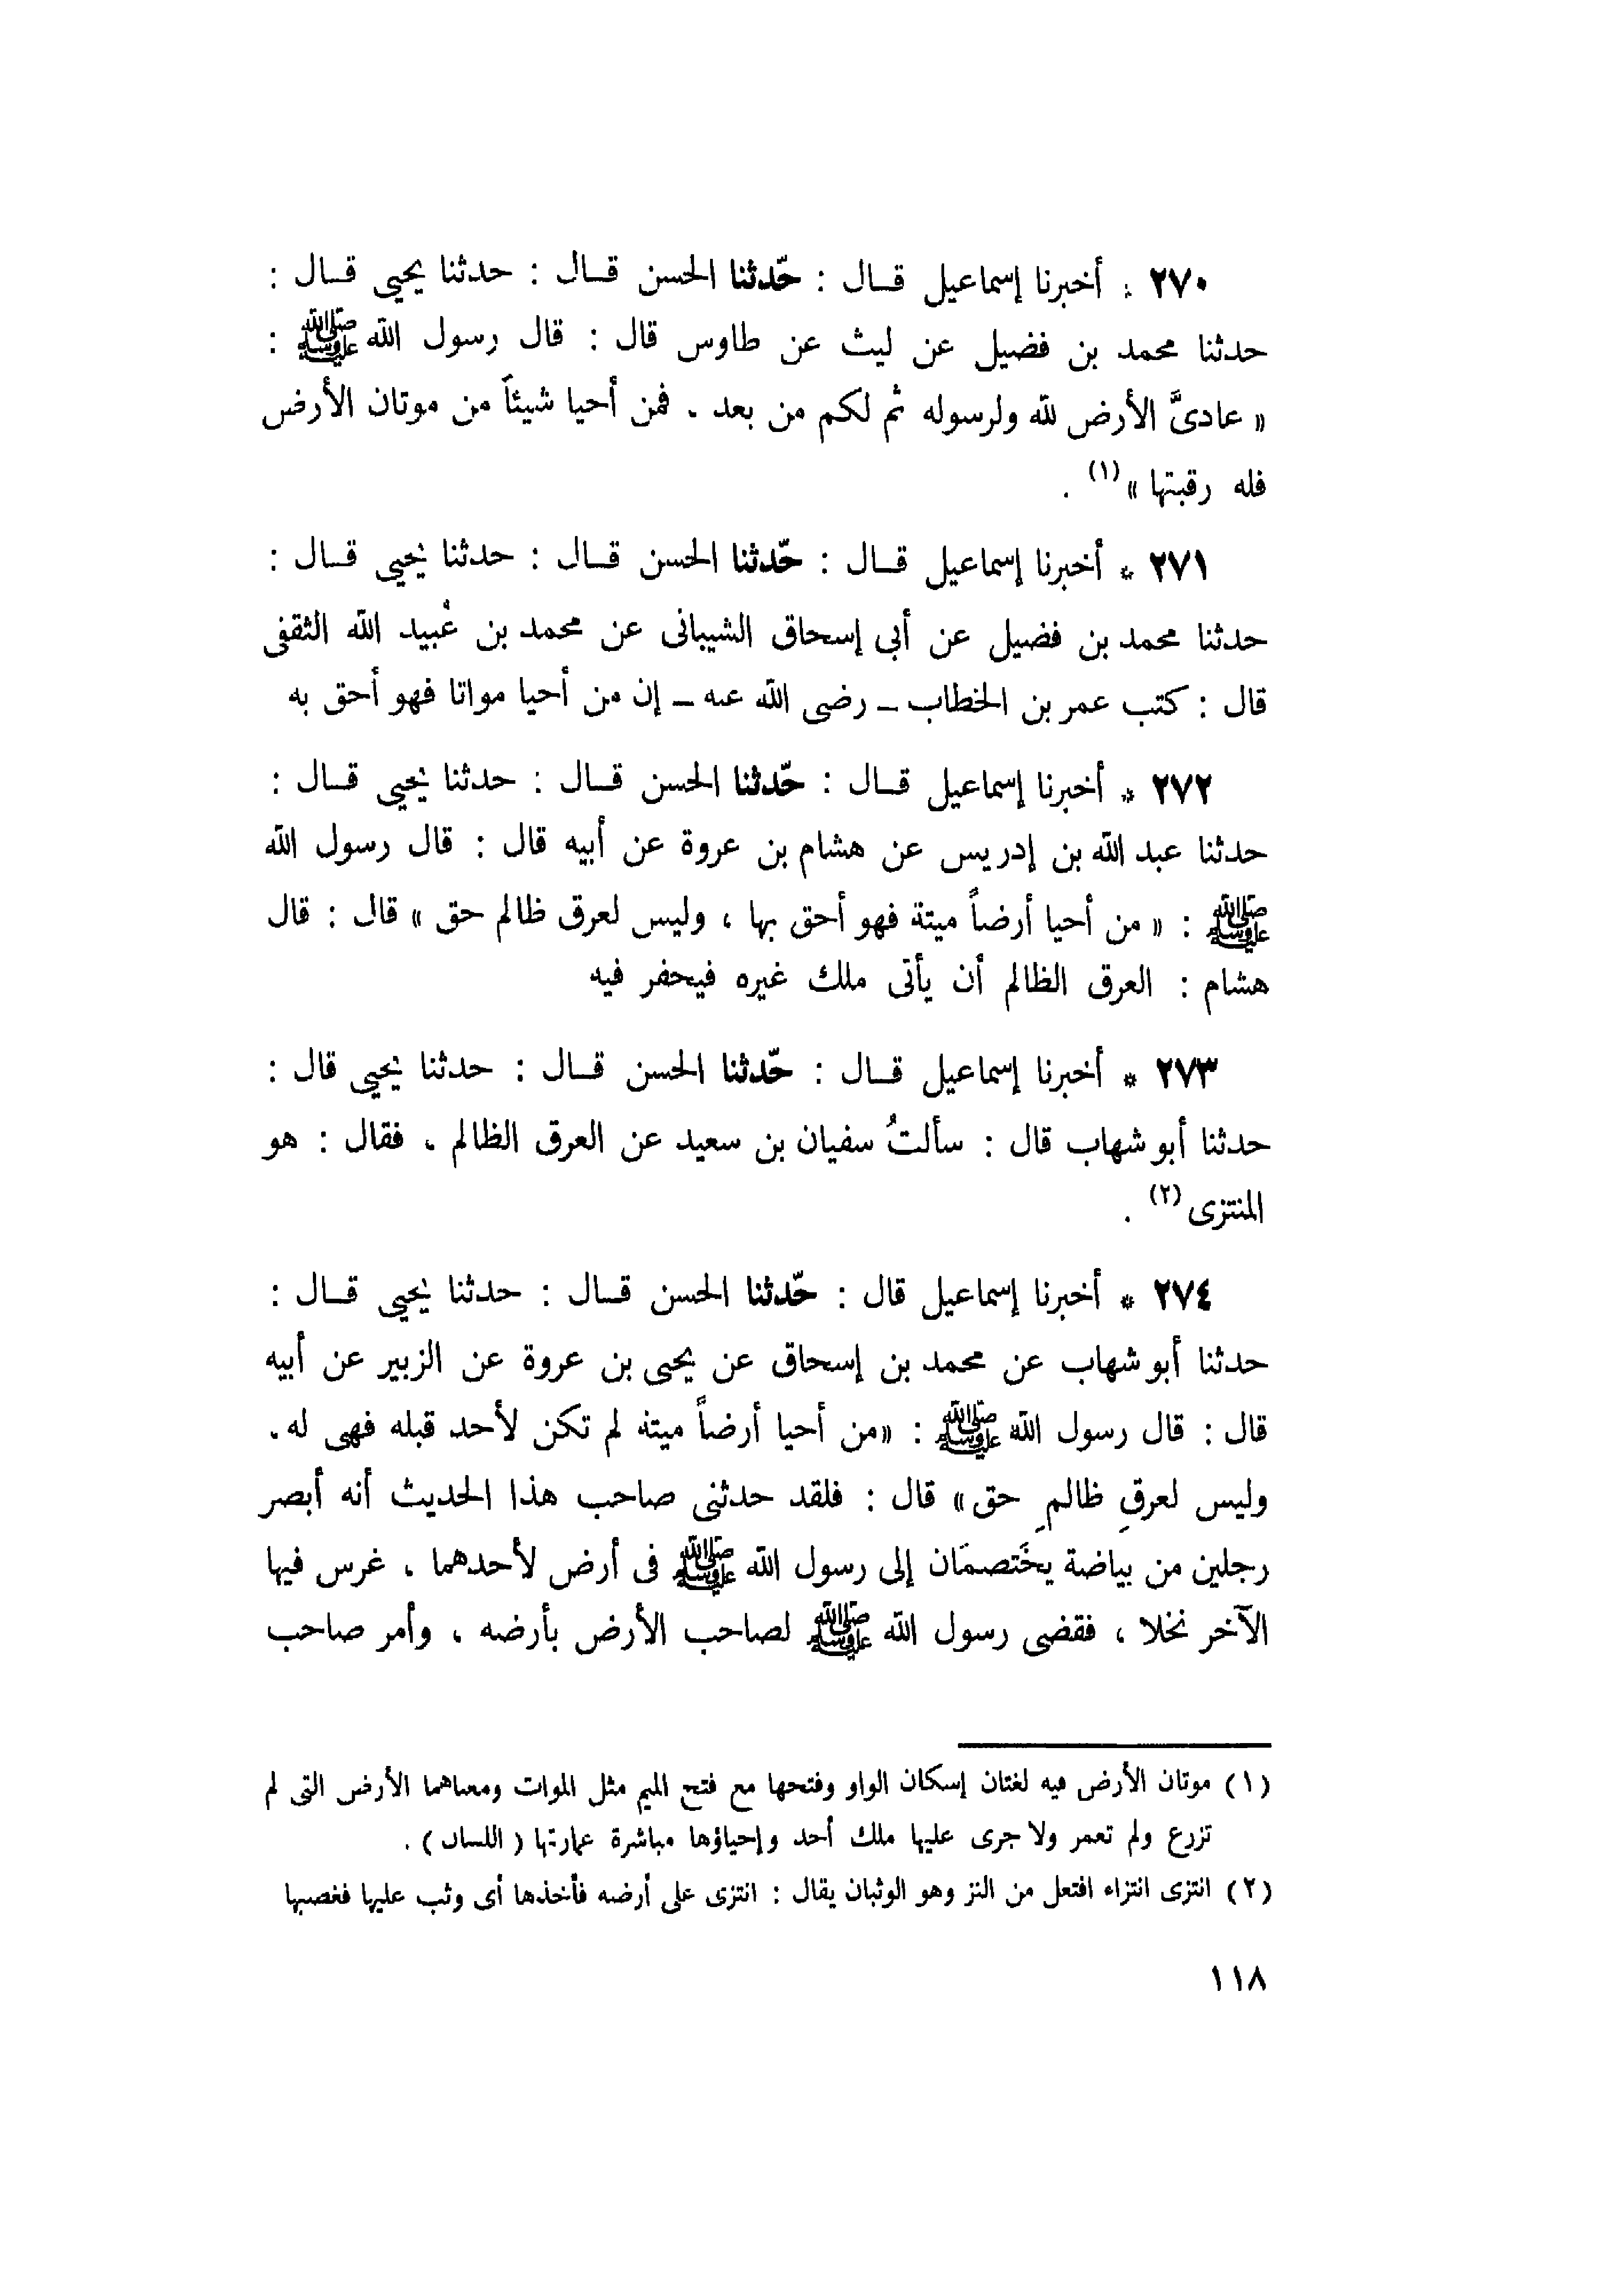 ٢٧٠ * أخبرنا إسماعيل قـال : حّدثنا الحسن قـال : حدثنا يحيى قـال :
حدثنا محمد بن فضيل عن ليث عن طاوس قال : قال رسول الله ﷺ :
« عادىَّ الأرض لله ولرسوله ثم لكم من بعد ، فمن أحيا شيئاً من موتان الأرض
فله رقبتها »(١) .
٢٧١ * أخبرنا إسماعيل قـال : حّدثنا الحسن قـال : حدثنا يحيى قـال :
حدثنا محمد بن فضيل عن أبى إسحاق الشيبانى عن محمد بن عُبيد الله الثقفى
قال : كتب عمر بن الخطاب ــ رضى الله عنه ــ إن من أحيا مواتا فهو أحق به
٢٧٢ * أخبرنا إسماعيل قـال : حّدثنا الحسن قـال : حدثنا يحيى قـال :
حدثنا عبد الله بن إدريس عن هشام بن عروة عن أبيه قال : قال رسول الله
ﷺ : « من أحيا أرضاً ميتة فهو أحق بها ، وليس لعرق ظالم حق » قال : قال
هشام : العرق الظالم أن يأتى ملك غيره فيحفر فيه
٢٧٣ * أخبرنا إسماعيل قـال : حّدثنا الحسن قـال : حدثنا يحيى قال :
حدثنا أبو شهاب قال : سألتُ سفيان بن سعيد عن العرق الظالم ، فقال : هو
المنتزى(٢) .
٢٧٤ * أخبرنا إسماعيل قال : حّدثنا الحسن قـال : حدثنا يحيى قـال :
حدثنا أبو شهاب عن محمد بن إسحاق عن يحيى بن عروة عن الزبير عن أبيه
قال : قال رسول الله ﷺ : «من أحيا أرضاً ميتة لم تكن لأحد قبله فهى له ،
وليس لعرقِ ظالمِ حق» قال : فلقد حدثنى صاحب هذا الحديث أنه أبصر
رجلين من بياضة يخَتصمَان إلى رسول الله ﷺ فى أرض لأحدهما ، غرس فيها
الآخر نخلا ، فقضى رسول الله ﷺ لصاحب الأرض بأرضه ، وأمر صاحب
(١) موتان الأرض فيه لغتان إسكان الواو وفتحها مع فتح الميم مثل الموات ومعناهما الأرض التى لم
تزرع ولم تعمر ولا جرى عليها ملك أحد وإحياؤها مباشرة عمارتها ( اللسان ) .
(٢) انتزى انتزاء افتعل من النز وهو الوثبان يقال : انتزى على أرضه فأخذها أى وثب عليها فغصبها
١١٨